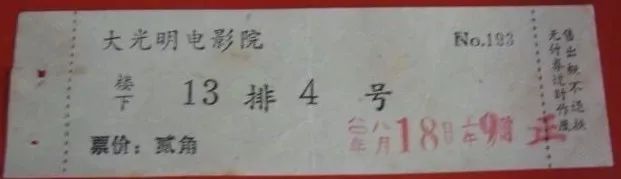 大光明电影院
No.193
楼下 13 排 4 号
票价：贰角
八月18日上午9时正
售出概不退换
无付券过时作废